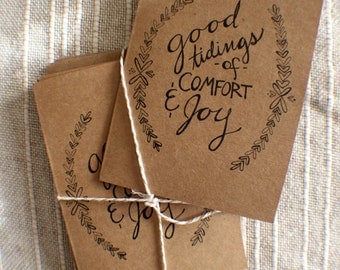 good
tidings
-of-
& COMFORT
Joy
& Joy